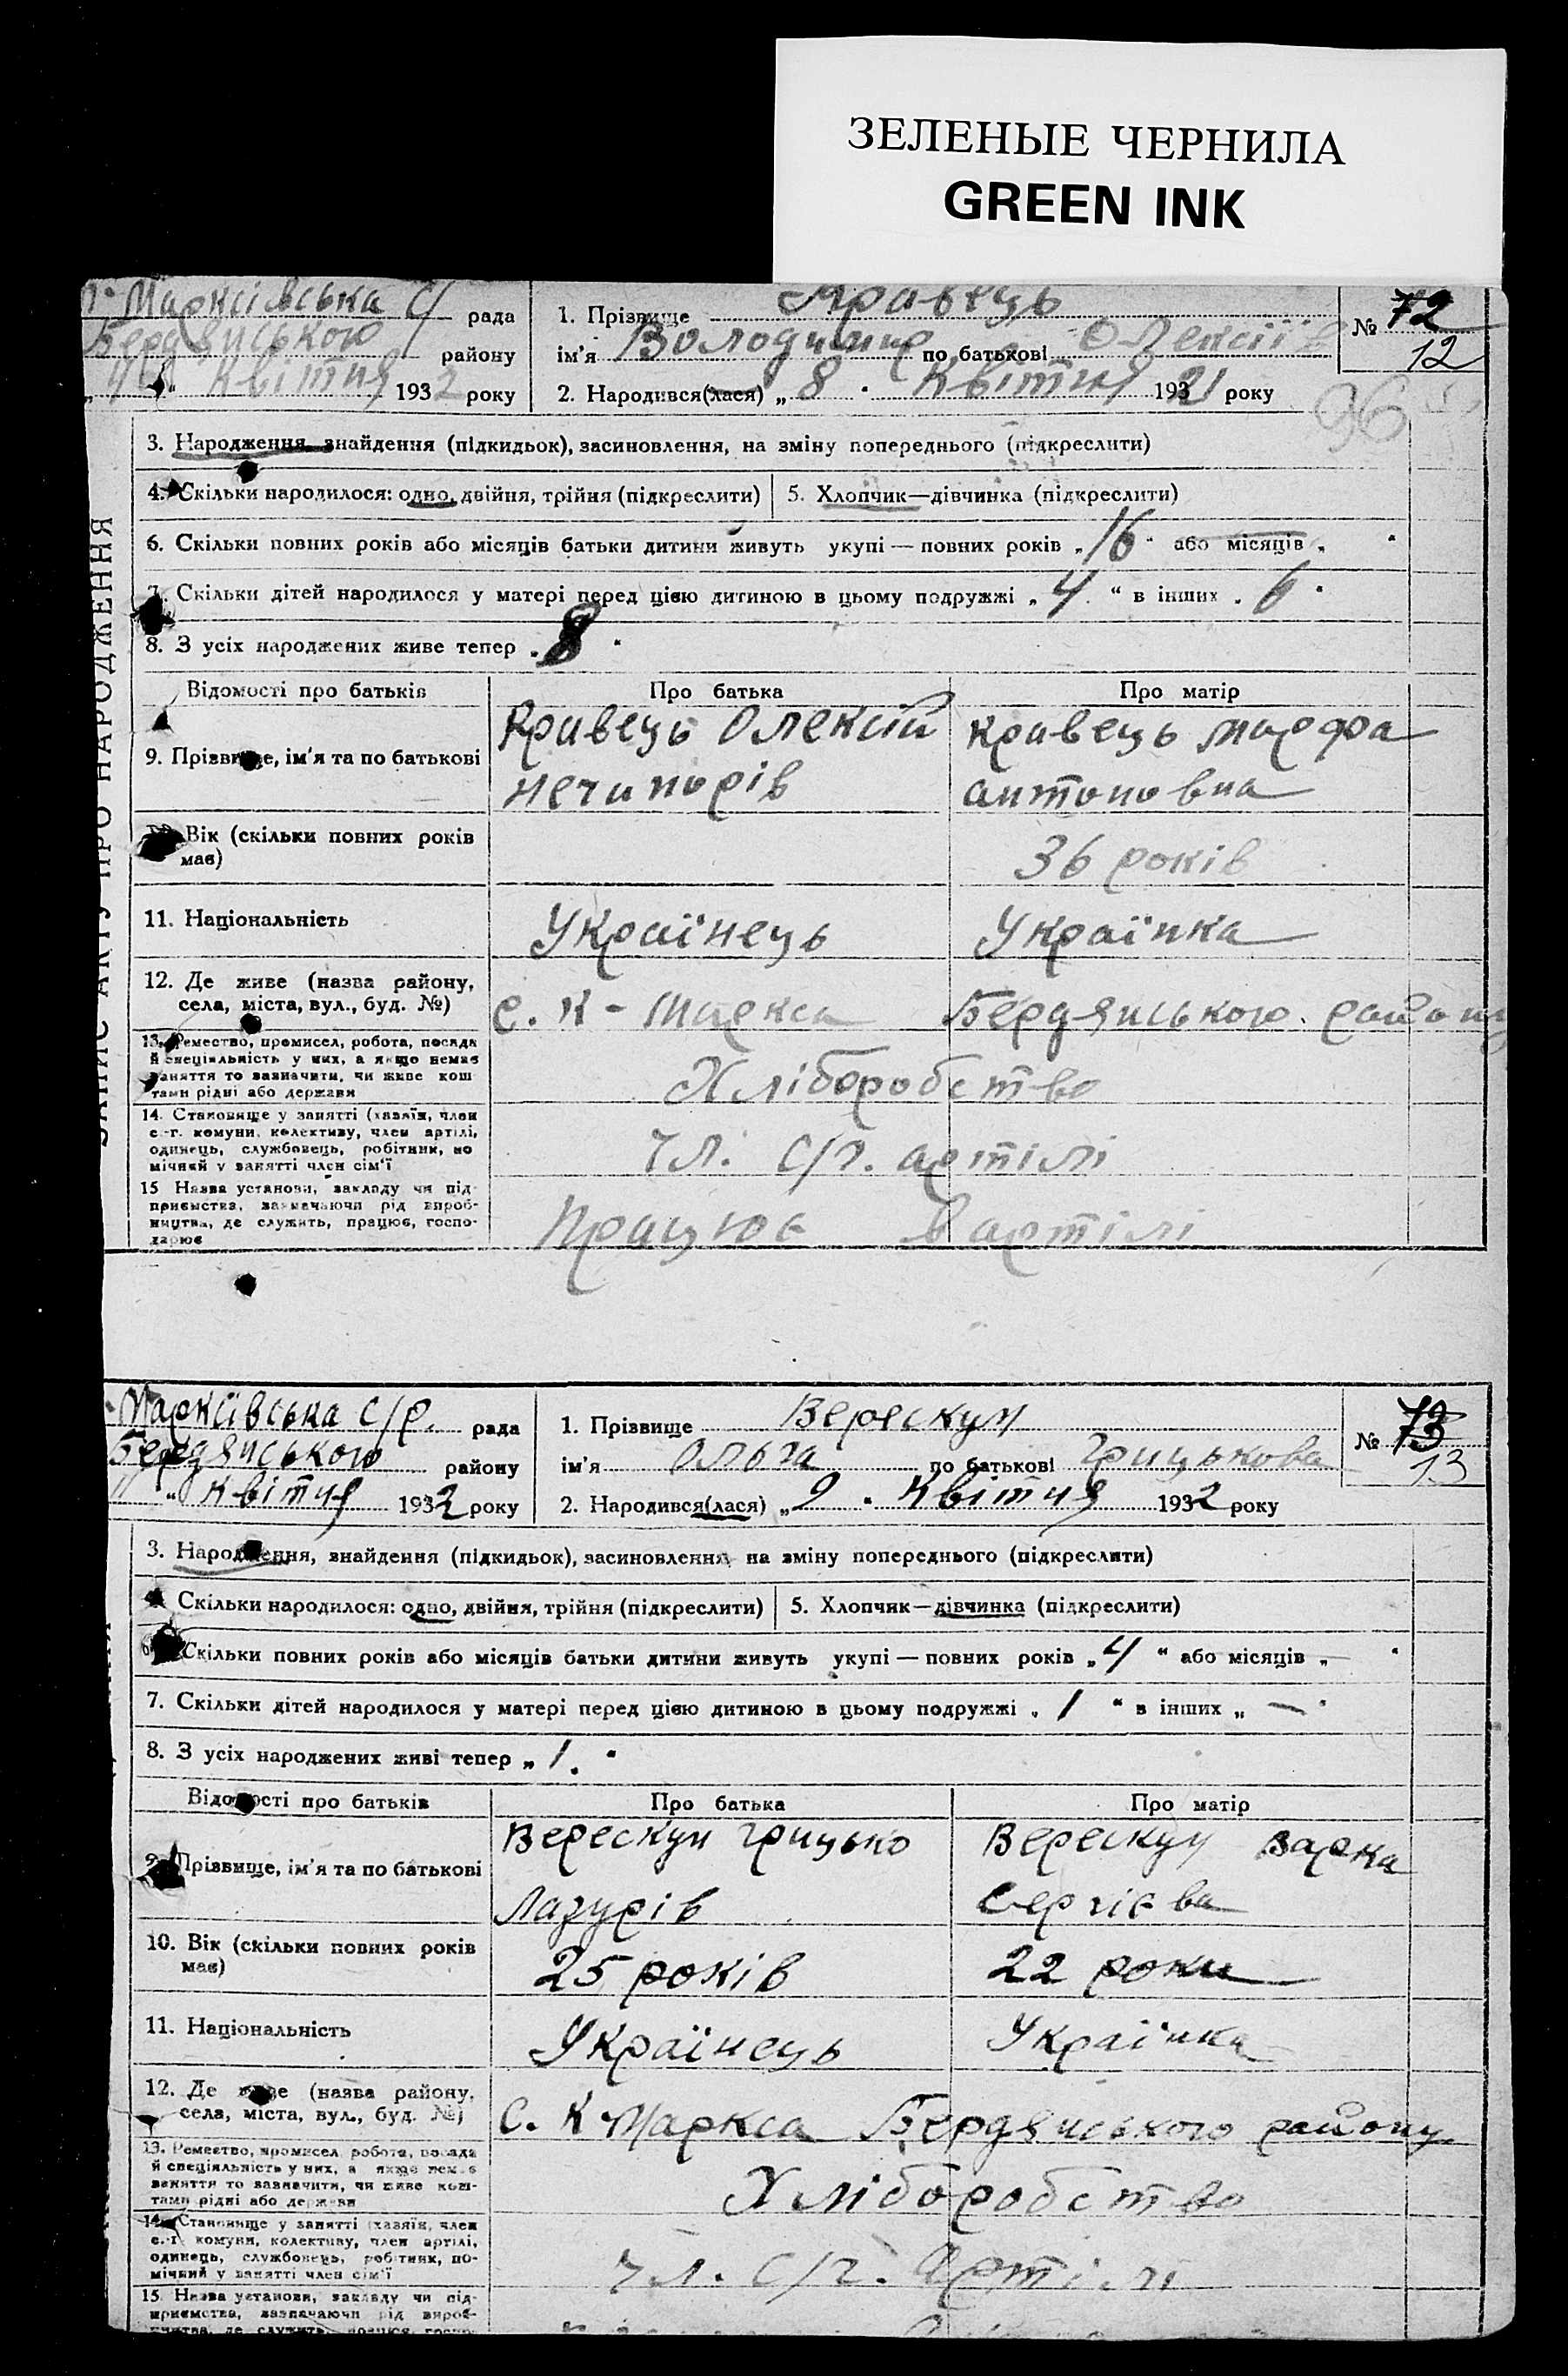 ЗЕЛЕНЫЕ ЧЕРНИЛА
GREEN INK
Марксівська С/ рада
Бердянського району
Квітня 1932 року
1. Прізвище Кравець
ім'я Володимир по батькові Олексіїв
2. Народився(лася) „ 8 " Квітня 193 року
№ 72
12
96
3. Народження, знайдення (підкидьок), засиновлення, на зміну попереднього (підкреслити)
4. Скільки народилося: одно, двійня, трійня (підкреслити)
5. Хлопчик—дівчинка (підкреслити)
6. Скільки повних років або місяців батьки дитини живуть укупі — повних років „ 16 " або місяців „ "
7. Скільки дітей народилося у матері перед цією дитиною в цьому подружжі „ 4 " в інших „ 6 "
8. З усіх народжених живе тепер „ 8 "
Відомості про батьків
Про батька
Про матір
9. Прізвище, ім'я та по батькові
Кравець Олексій
Нечипорів
Кравець Марфа
Антоновна
10. Вік (скільки повних років
має)
36 років
11. Національність
Українець
Українка
12. Де живе (назва району,
села, міста, вул., буд. №)
с. К-Маркса Бердянського району
13. Ремество, промисел, робота, посада
й спеціяльність у них, а якщо немає
заняття то зазначити, чи живе кош
тами рідні або держави
Хліборобство
14. Становище у занятті (хазяїн, член
с.-г. комуни, колективу, член артілі,
одинець, службовець, робітник, по
мічний у занятті член сім'ї
чл. с/г. артілі
15 Назва установи, закладу чи під-
приємства, зазначаючи рід вироб-
ництва, де служить, працює, госпо-
дарює
Працює в артілі
ЗАПИС АКТУ ПРО НАРОДЖЕННЯ
Марксівська С/р. рада
Бердянського району
11 " Квітня 1932 року
1. Прізвище Верескун
ім'я Ольга по батькові Грицькова
2. Народився(лася) „ 9 " Квітня 1932 року
№ 73
13
3. Народження, знайдення (підкидьок), засиновлення, на зміну попереднього (підкреслити)
4. Скільки народилося: одно, двійня, трійня (підкреслити)
5. Хлопчик—дівчинка (підкреслити)
6. Скільки повних років або місяців батьки дитини живуть укупі — повних років „ 4 " або місяців „ — "
7. Скільки дітей народилося у матері перед цією дитиною в цьому подружжі „ 1 " в інших „ — "
8. З усіх народжених живі тепер „ 1. "
Відомості про батьків
Про батька
Про матір
9. Прізвище, ім'я та по батькові
Верескун Грицько
Лазурів
Верескун Варка
Сергієва
10. Вік (скільки повних років
має)
25 років
22 роки
11. Національність
Українець
Українка
12. Де живе (назва району,
села, міста, вул., буд. №)
С. К-Маркса Бердянського району
13. Ремество, промисел робота, посада
й спеціяльність у них, а якщо немає
заняття то зазначити, чи живе кош-
тами рідні або держави
Хліборобство
14. Становище у занятті (хазяїн, член
с.-г. комуни, колективу, член артілі,
одинець, службовець, робітник, по-
мічний у занятті член сім'ї
чл. С/г. Артілі
15. Назва установи, закладу чи під-
приємства, зазначаючи рід вироб-
ництва, де служить, працює, госпо-